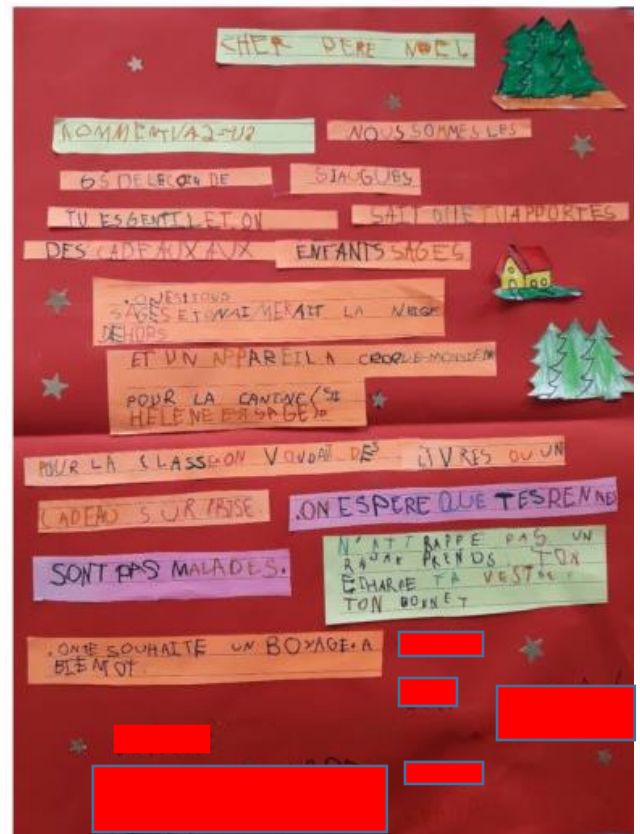 CHER PERE NOEL
KOMMENT VA2-U? NOUS SOMMES LES
GS DE LECOLE DE SIAUGUES
TU ES GENTIL ET ON SAIT QUE TU APPORTES
DES CADEAUX AUX ENFANTS SAGES
.ON EST TOUS
SAGES ET ON AIMERAIT LA NEIGE
DEHORS
ET UN APPAREIL A CROQUE-MONSIEUR
POUR LA CANTINE (SI
HELENE EST SAGE).
POUR LA CLASSE ON VOUDAIT DES LIVRES OU UN
CADEAU SURPRISE .ON ESPERE QUE TES RENNES
SONT PAS MALADES.
N'ATTRAPPE PAS UN
PRENDS TON
ECHARPE TA VESTE
TON BONNET
.ON TE SOUHAITE UN BOYAGE. A
BIENTOT.